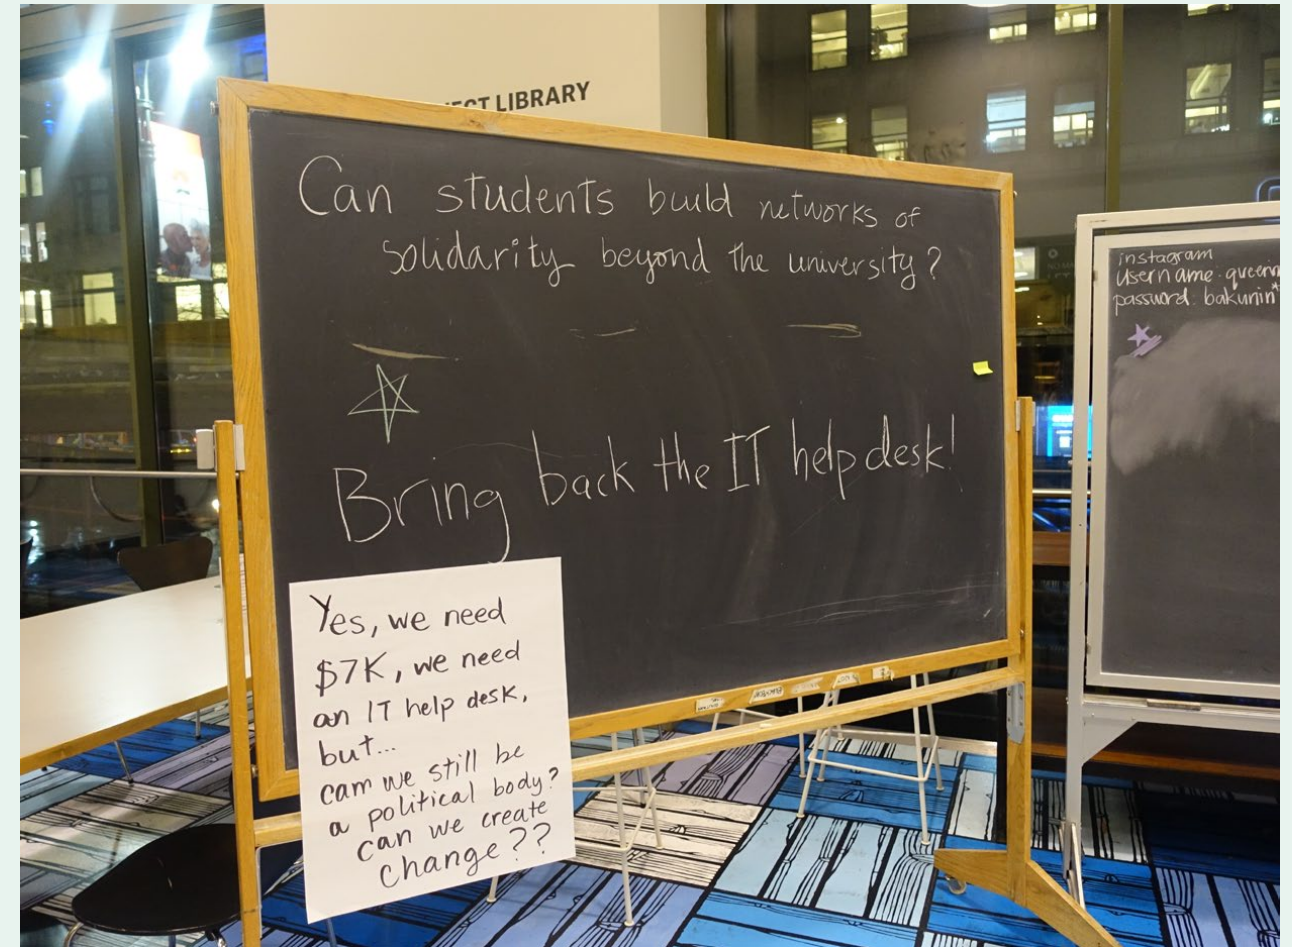 LIBRARY
Can students build networks of
solidarity beyond the university?
Bring back the IT help desk!
Yes, we need
$7K, we need
an IT help desk,
but...
cam we still be
a political body?
can we create
change??
instagram
username
password: bakunin